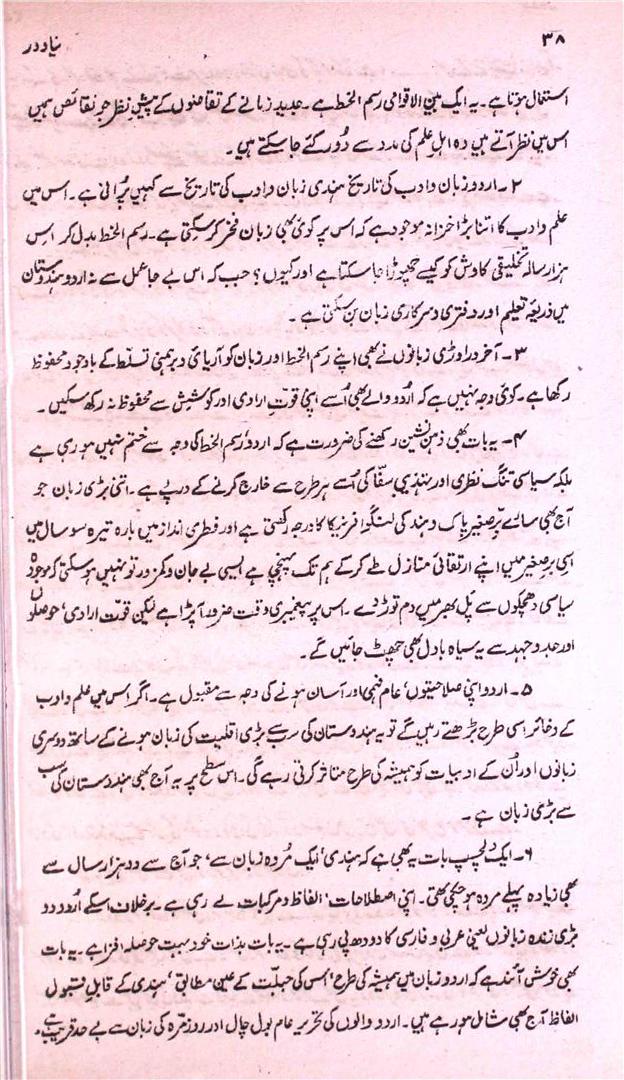 ۳۸
نیا دور
استعمال ہوتا ہے۔ یہ ایک بین الاقوامی رسم الخط ہے۔ جدید زمانے کے تقاضوں کے پیشِ نظر جو نقائص ہمیں
اس میں نظر آتے ہیں وہ اہلِ علم کی مدد سے دُور کئے جا سکتے ہیں۔
۲۔ اردو زبان و ادب کی تاریخ ہندی زبان و ادب کی تاریخ سے کہیں پُرانی ہے۔ اس میں
علم و ادب کا اتنا بڑا خزانہ موجود ہے کہ اس پر کوئی بھی زبان فخر کر سکتی ہے۔ رسم الخط بدل کر اس
ہزار سالہ تخلیقی کاوش کو کیسے چھوڑا جا سکتا ہے اور کیوں؟ جب کہ اس بے جا عمل سے نہ اردو ہندوستان
میں ذریعۂ تعلیم اور دفتری و سرکاری زبان بن سکتی ہے۔
۳۔ آخر دراوڑی زبانوں نے بھی اپنے رسم الخط اور زبان کو آریائی و برہمنی تسلّط کے باوجود محفوظ
رکھا ہے۔ کوئی وجہ نہیں ہے کہ اُردو والے بھی اُسے اپنی قوتِ ارادی اور کوشش سے محفوظ نہ رکھ سکیں۔
۴۔ یہ بات بھی ذہن نشین رکھنے کی ضرورت ہے کہ اردو رسم الخط کی وجہ سے ختم نہیں ہو رہی ہے
بلکہ سیاسی تنگ نظری اور تہذیبی سفّاکی اُسے ہر طرح سے خارج کرنے کے درپے ہے۔ اتنی بڑی زبان جو
آج بھی سارے برِّصغیر پاک و ہند کی لنگوا فرینکا کا درجہ رکھتی ہے اور فطری انداز میں بارہ تیرہ سو سال میں
اسی برِصغیر میں اپنے ارتقائی منازل طے کر کے ہم تک پہنچی ہے ایسی بے جان و کمزور تو نہیں ہو سکتی کہ موجودہ
سیاسی دھچکوں سے پَل بھر میں دم توڑ دے۔ اس پر پیغمبری وقت ضرور آ پڑا ہے لیکن قوّت ارادی، حوصلوں
اور جدوجہد سے یہ سیاہ بادل بھی چھٹ جائیں گے۔
۵۔ اردو اپنی صلاحیتوں، عام فہمی اور آسان ہونے کی وجہ سے مقبول ہے۔ اگر اس میں علم و ادب
کے ذخائر اسی طرح بڑھتے رہیں گے تو یہ ہندوستان کی سب سے بڑی اقلیت کی زبان ہونے کے ساتھ دوسری
زبانوں اور اُن کے ادبیات کو ہمیشہ کی طرح متاثر کرتی رہے گی۔ اس سطح پر یہ آج بھی ہندوستان کی سب
سے بڑی زبان ہے۔
۶۔ ایک دلچسپ بات یہ بھی ہے کہ ہندی، ایک مُردہ زبان سے، جو آج سے دو ہزار سال سے
بھی زیادہ پہلے مردہ ہو چکی تھی۔ اپنی اصطلاحات، الفاظ و مرکبات لے رہی ہے۔ برخلاف اسکے اُردو دو
بڑی زندہ زبانوں یعنی عربی و فارسی کا دودھ پی رہی ہے۔ یہ بات بذات خود بہت حوصلہ افزا ہے۔ یہ بات
بھی خوش آئند ہے کہ اردو زبان میں ہمیشہ کی طرح، اس کی جبلّت کے عین مطابق، ہندی کے قابلِ قبول
الفاظ آج بھی شامل ہو رہے ہیں۔ اردو والوں کی تحریر عام بول چال اور روزمرّہ کی زبان سے بے حد قریب ہے۔